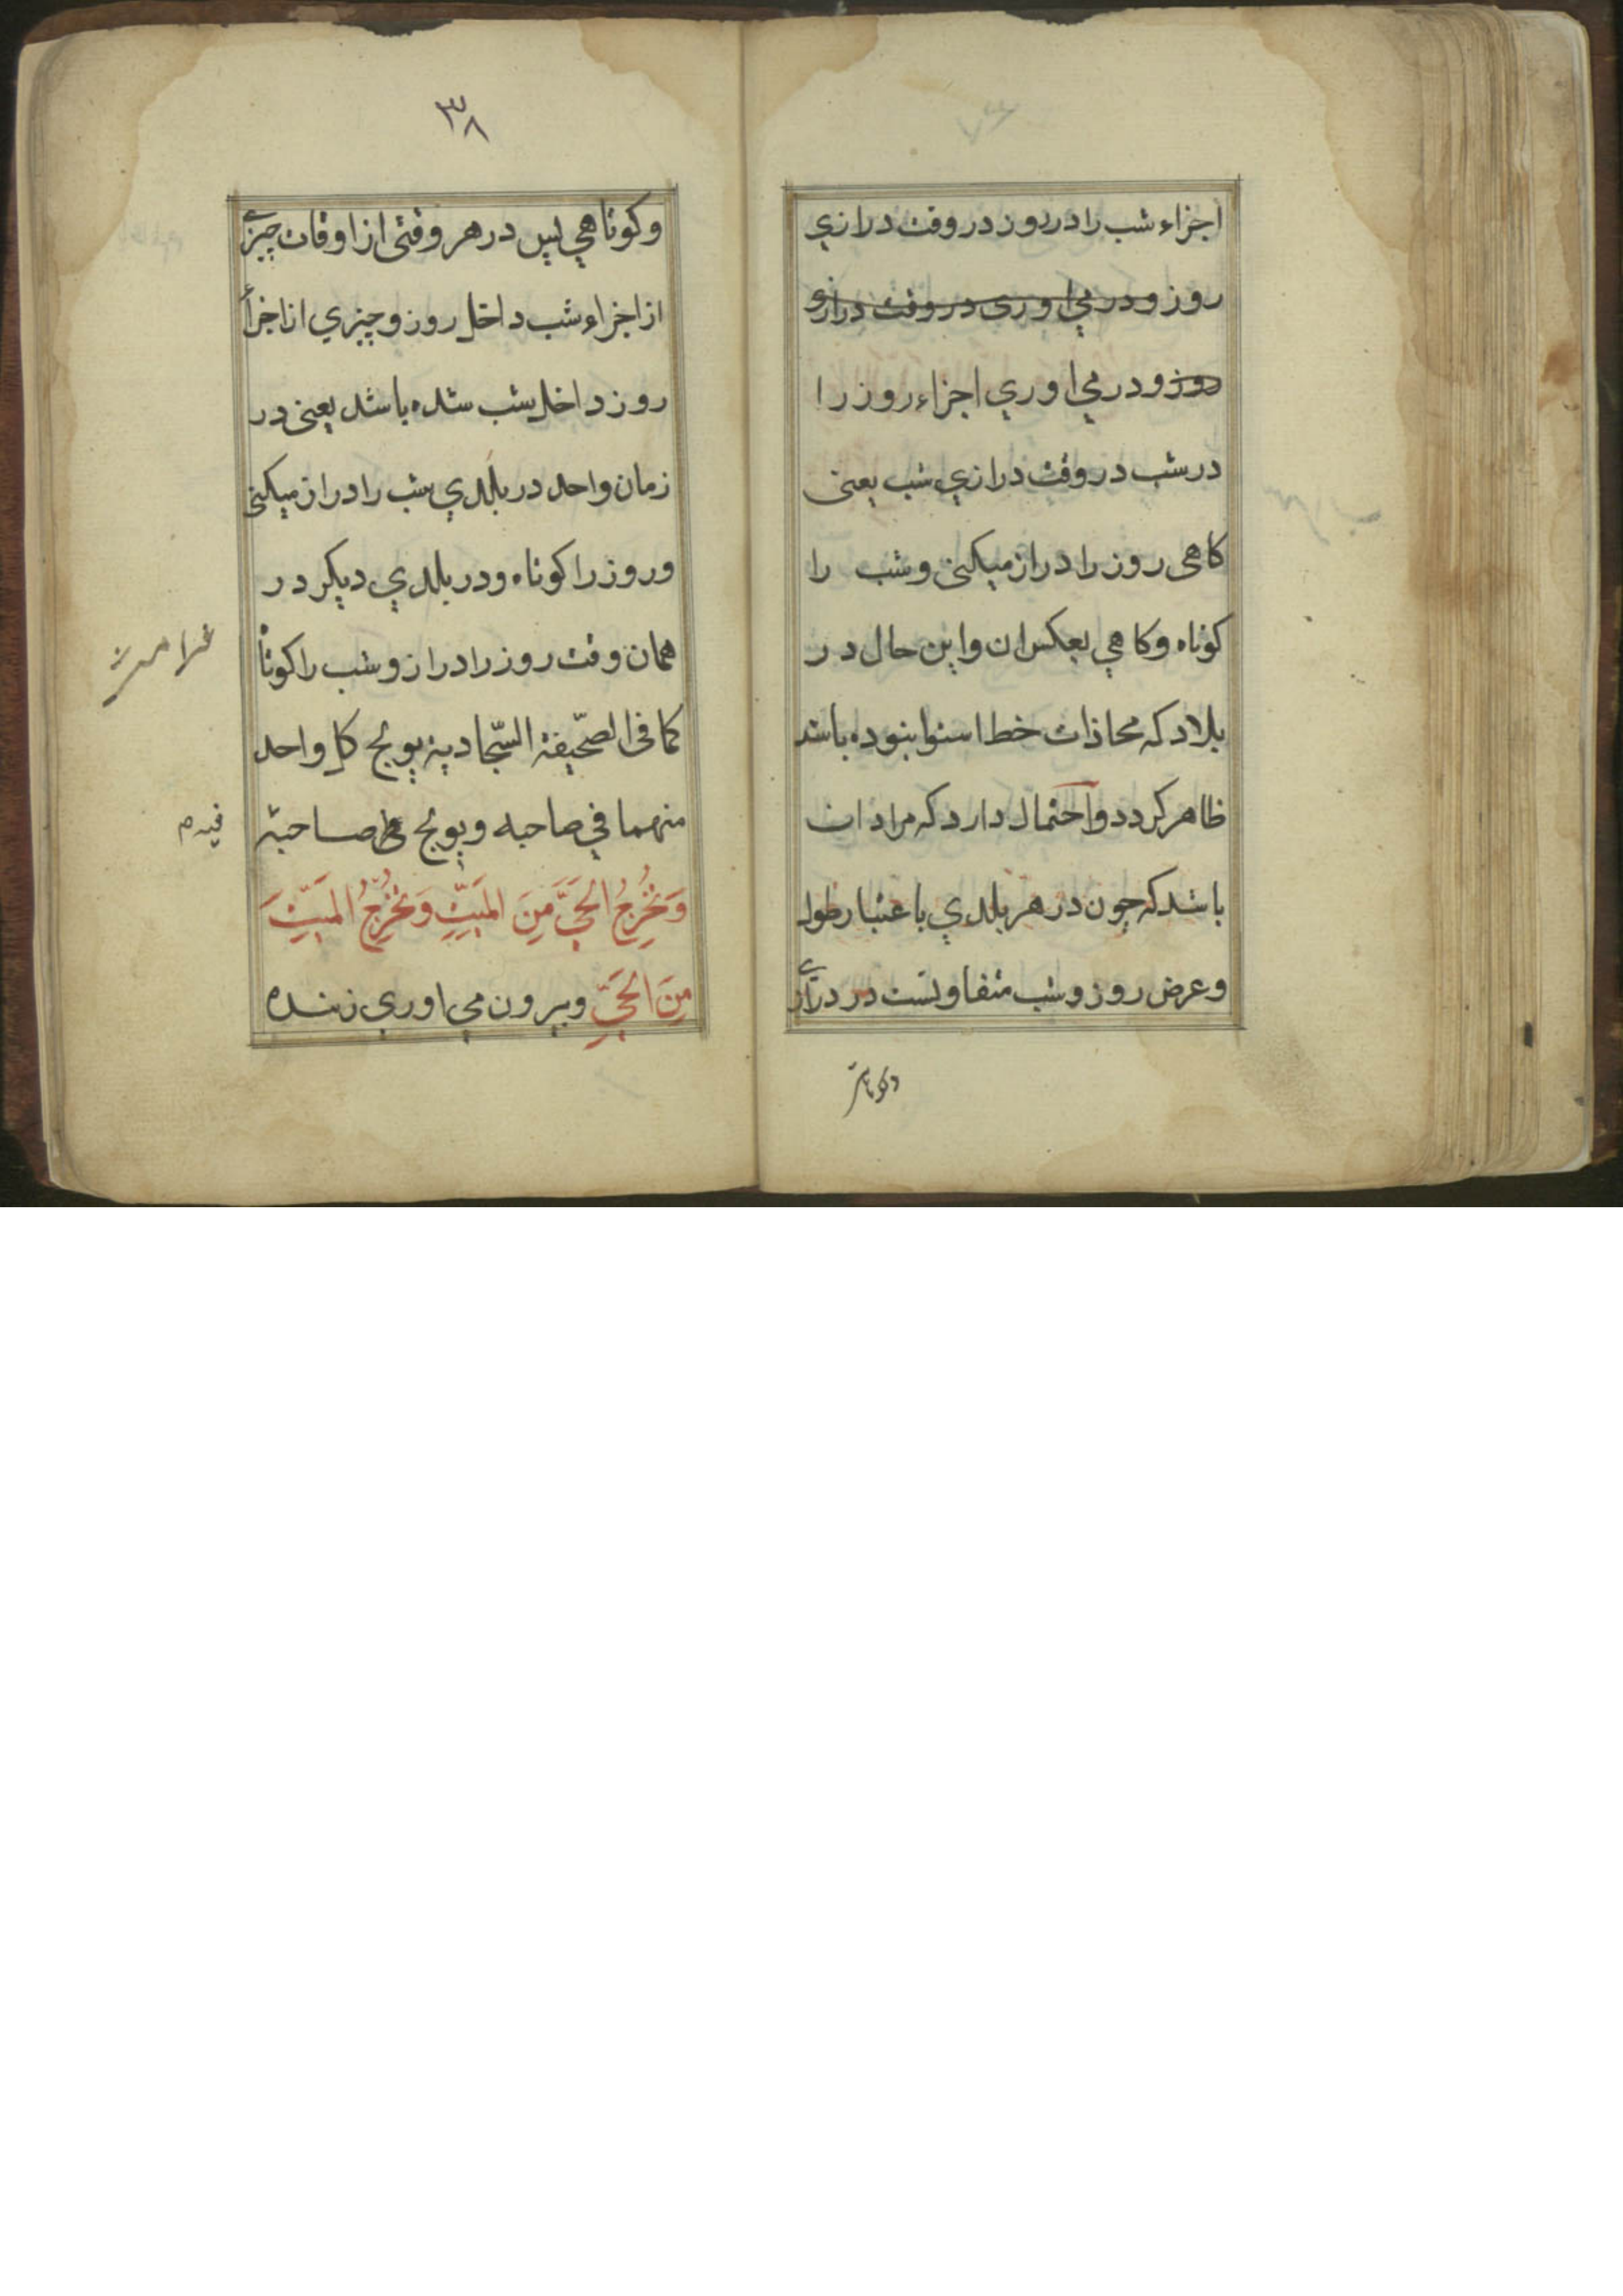 اجزاء شب را در روز در وقت درازي
روز ودر مي اوري در وقت درازي
روز ودر مي اوري اجزاء روز را
در شب در وقت درازي شب يعنى
كاهى روز را دراز ميكنى وشب را
كوتاه وكاهي بعكس ان واين حال در
بلاد كه محاذات خط استوا نبوده باشد
ظاهر كردد واحتمال دارد كه مراد ان
باشد كه چون در هر بلدي باعتبار طول
وعرض روز وشب متفاوتست در درازي
وكوتاهي
٣٨
وكوتاهي پس در هر وقتى از اوقات چيزي
از اجزاء شب داخل روز وچيزي از اجزاء
روز داخل شب شده باشد يعنى در
زمان واحد در بلدي شب را دراز ميكنى
وروز را كوتاه ودر بلدي ديكر در
همان وقت روز را دراز وشب را كوتاه
كما فى الصّحيفة السّجادية يولج كل واحد
منهما في صاحبه ويولج صاحبه
فيه م
وَتُخْرِجُ الحَيَّ مِنَ المَيِّتِ وَتُخْرِجُ المَيِّتَ
مِنَ الحَيِّ وبيرون مي اوري زنده